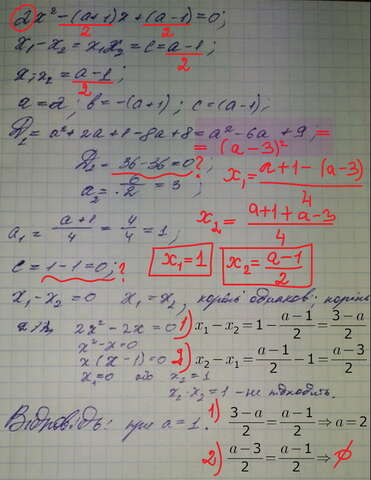 2x² - (a+1)x + (a-1) = 0;
2 2
x₁ - x₂ = x₁x₂ = c = a-1 / 2;
x₁x₂ = a-1 / 2;
a = 2; b = -(a+1); c = (a-1);
D = a² + 2a + 1 - 8a + 8 = a² - 6a + 9; =
= (a-3)²
D₁ = 36 - 36 = 0; ?
x₁ = a+1-(a-3) / 4
a₂ = 6 / 2 = 3;
x₂ = a+1+a-3 / 4
a₁ = a+1 / 4 = 4 / 4 = 1;
c = 1-1 = 0; ?
x₁ = 1
x₂ = a-1 / 2
x₁ - x₂ = 0 x₁ = x₂, корені однаков; корінь
2x² - 2x = 0
1) x₁ - x₂ = 1 - a-1 / 2 = 3-a / 2
x² - x = 0
x(x-1) = 0
2) x₂ - x₁ = a-1 / 2 - 1 = a-3 / 2
x₁ = 0 або x₂ = 1
x₂ - x₁ = 1 - не підходить.
Відповідь: при a = 1.
1) 3-a / 2 = a-1 / 2 ⇒ a = 2
2) a-3 / 2 = a-1 / 2 ⇒ ∅